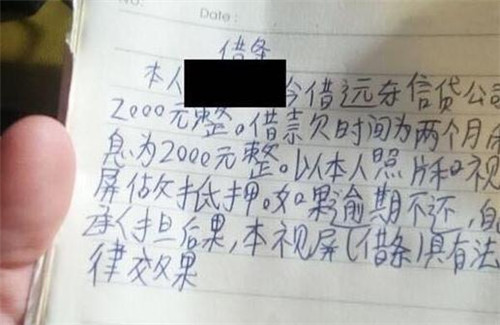 No:
Date:
借条
本人 今借远东信贷公司
2000元整。借款欠时间为两个月
息为2000元整。以本人照片和视
屏做抵押。如果逾期不还,自
承担后果,本视屏(借条)具有法
律效果